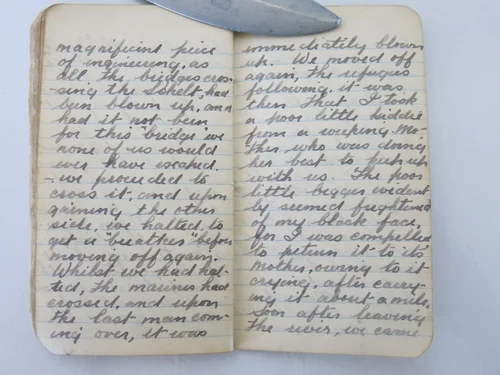 magnificint piece
of engineering, as
all the bridges cros-
-sing the Schelt, had
been blown up, and
had it not been
for this "bridge" we
none of us would
ever have escaped.
- we proceeded to
cross it, and upon
gaining the other
side, we halted, to
get a "breather" before
moving off again.
Whilst we had hal-
ted, the marines had
crossed, and upon
the last man com-
ing over, it was
immediately blown
up. We moved off
again, the refugees
following, it was
then that I took
a poor little kiddie
from a weeping Mo-
ther, who was doing
her best to keep up
with us. The poor
little beggar evident
ly seemed frightened
of my black face,
for I was compelled
to return it to its
mother, owing to it
crying, after carry-
ing it about a mile.
Soon after leaving
the river, we came